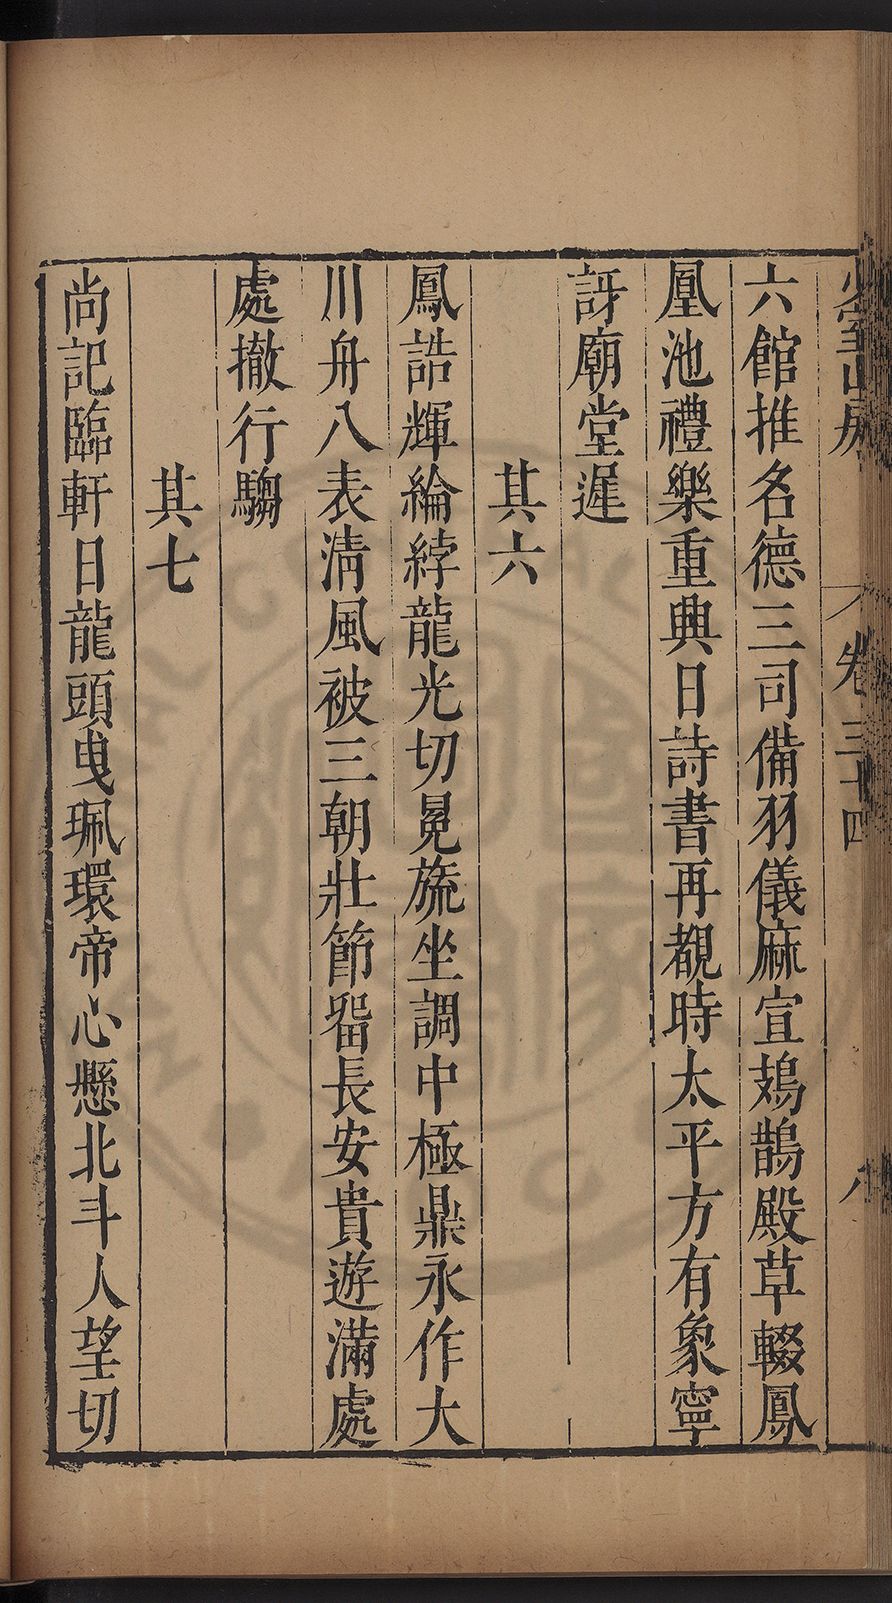 六館推名德三司備羽儀麻宣鳷鵲殿草輟鳳
凰池禮樂重典日詩書再覩時太平方有象寧
訝廟堂遲
其六
鳳誥輝綸綍龍光切冕旒坐調中極鼎永作大
川舟八表清風被三朝壯節留長安貴遊滿處
處撤行騶
其七
尚記臨軒日龍頭曳珮環帝心懸北斗人望切